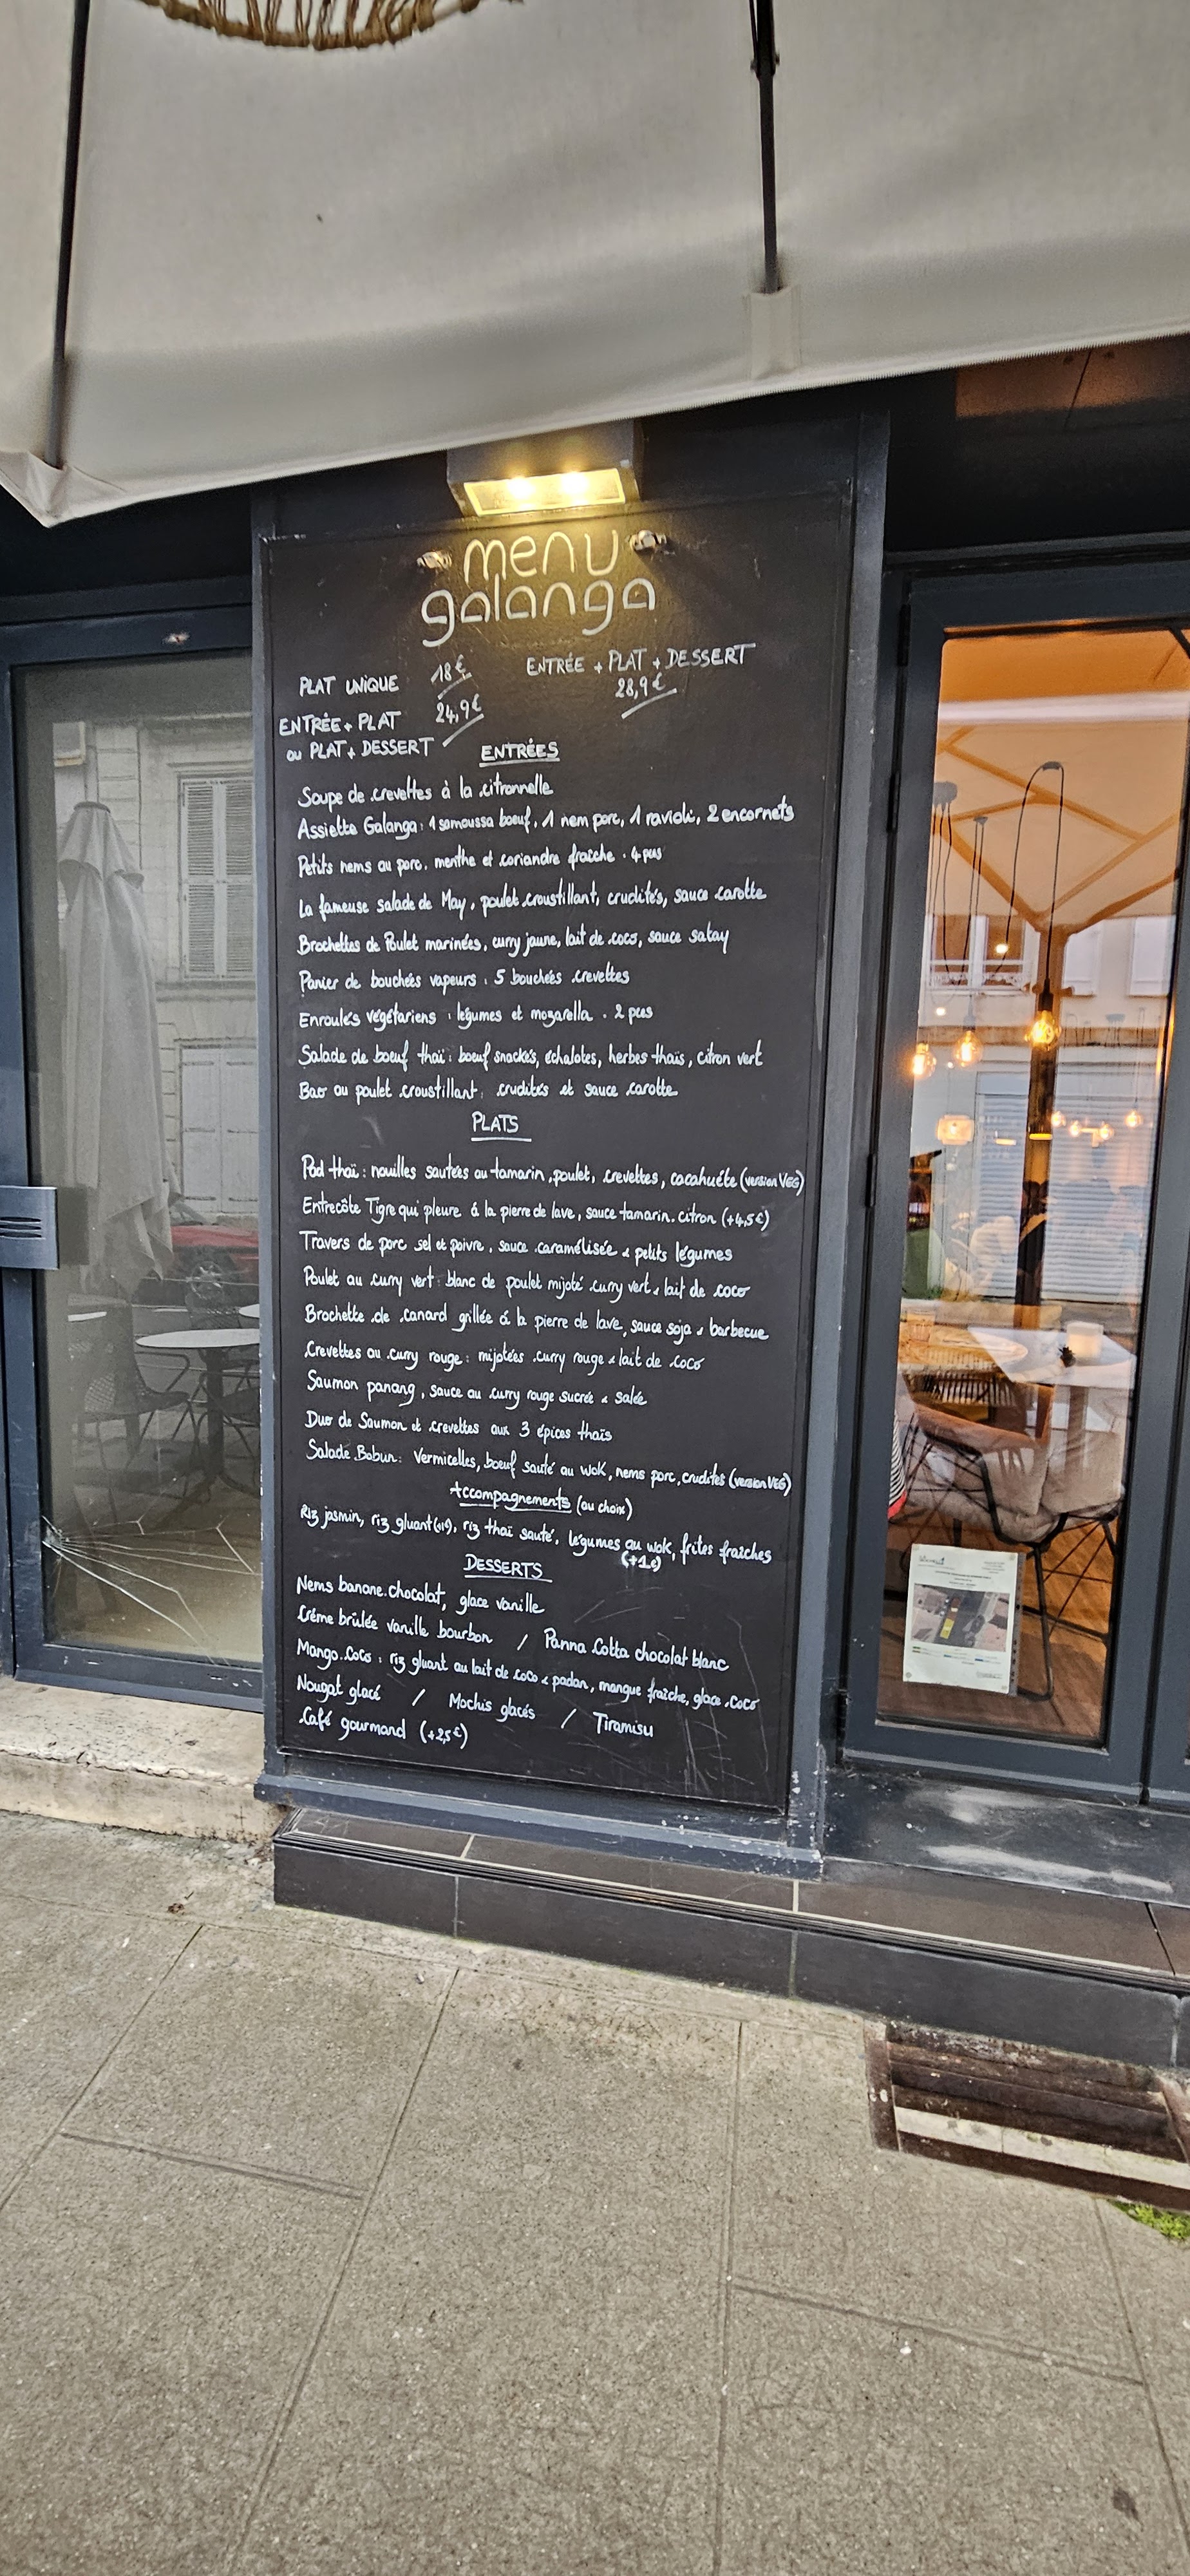 menu
galanga
PLAT UNIQUE 18€
ENTRÉE + PLAT 24,9€
ou PLAT + DESSERT
ENTRÉE + PLAT + DESSERT
28,9€
ENTRÉES
Soupe de crevettes à la citronnelle
Assiette Galanga : 1 samoussa boeuf, 1 nem porc, 1 ravioli, 2 encornets
Petits nems au porc, menthe et coriandre fraîche . 4 pces
La fameuse salade de May, poulet croustillant, crudités, sauce carotte
Brochettes de Poulet marinées, curry jaune, lait de coco, sauce satay
Panier de bouchées vapeurs : 5 bouchées crevettes
Enroulés végétariens : légumes et mozarella . 2 pces
Salade de boeuf thaï : boeuf snackés, échalotes, herbes thaïs, citron vert
Bao au poulet croustillant : crudités et sauce carotte
PLATS
Pad thaï : nouilles sautées au tamarin, poulet, crevettes, cacahuète (version VEG)
Entrecôte Tigre qui pleure à la pierre de lave, sauce tamarin.citron (+4,5€)
Travers de porc sel et poivre, sauce caramélisée & petits légumes
Poulet au curry vert : blanc de poulet mijoté curry vert & lait de coco
Brochette de canard grillée à la pierre de lave, sauce soja & barbecue
Crevettes au curry rouge : mijotées curry rouge & lait de coco
Saumon panang, sauce au curry rouge sucrée & salée
Duo de Saumon et crevettes aux 3 épices thaïs
Salade Bobun : Vermicelles, boeuf sauté au wok, nems porc, crudités (version VEG)
Accompagnements (au choix)
Riz jasmin, riz gluant (+1€), riz thaï sauté, légumes au wok, frites fraîches
(+1€)
DESSERTS
Nems banane.chocolat, glace vanille
Crème brûlée vanille bourbon / Panna Cotta chocolat blanc
Mango.Coco : riz gluant au lait de coco & padan, mangue fraîche, glace coco
Nougat glacé / Mochis glacés / Tiramisu
Café gourmand (+2,5€)